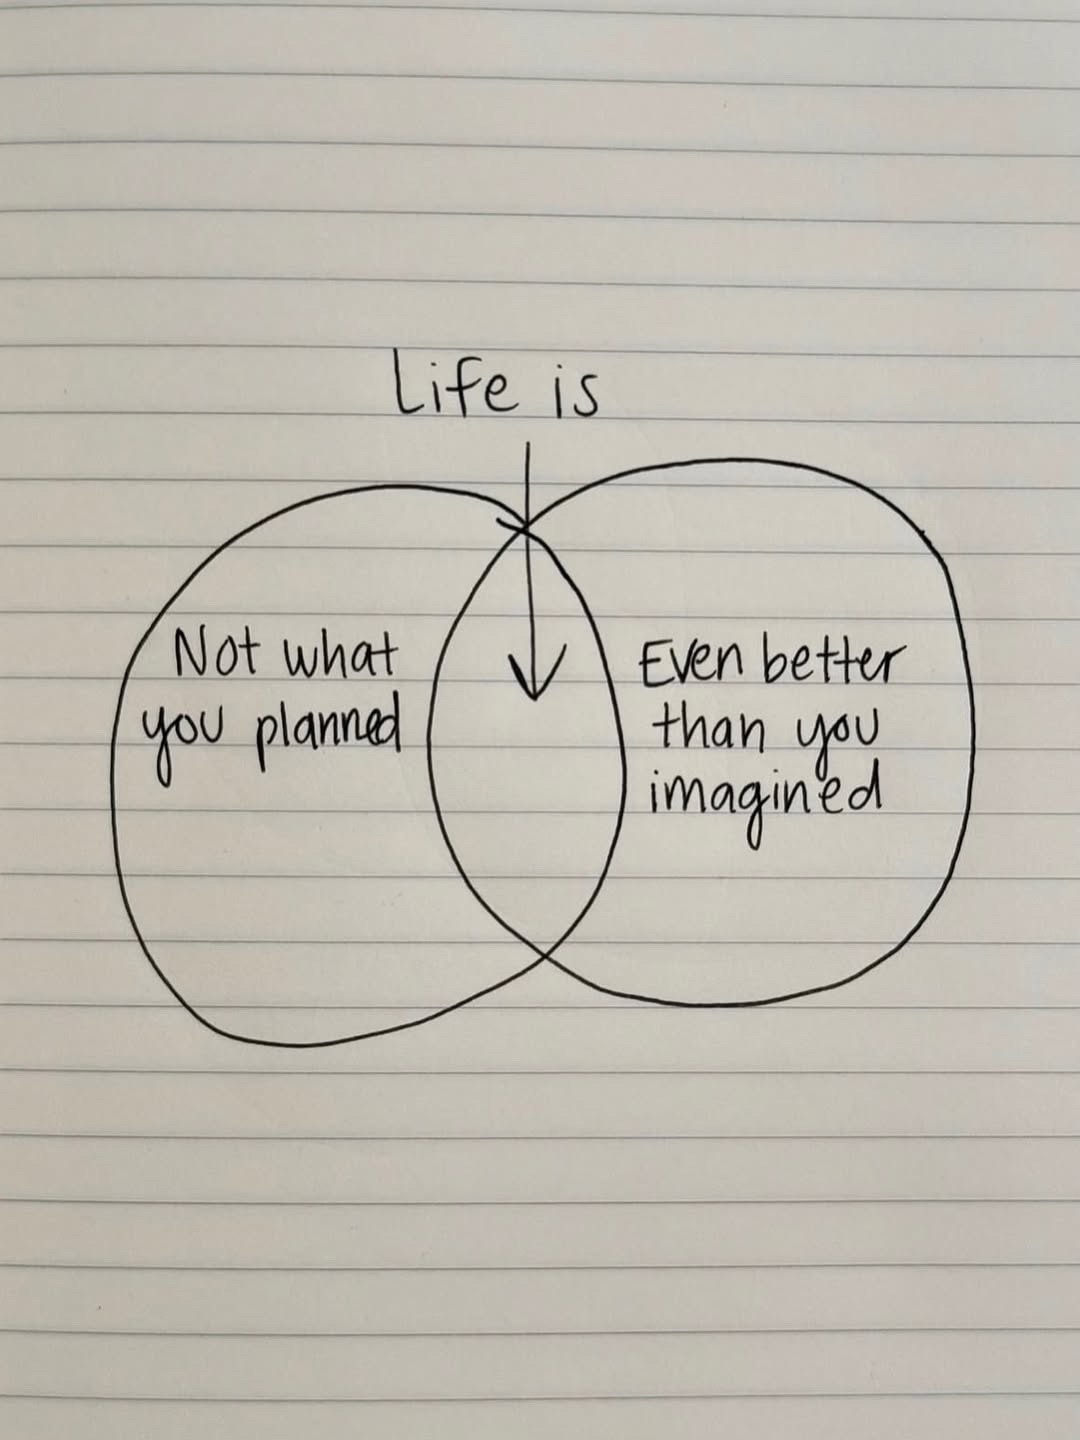 Life is
Not what
you planned
Even better
than you
imagined